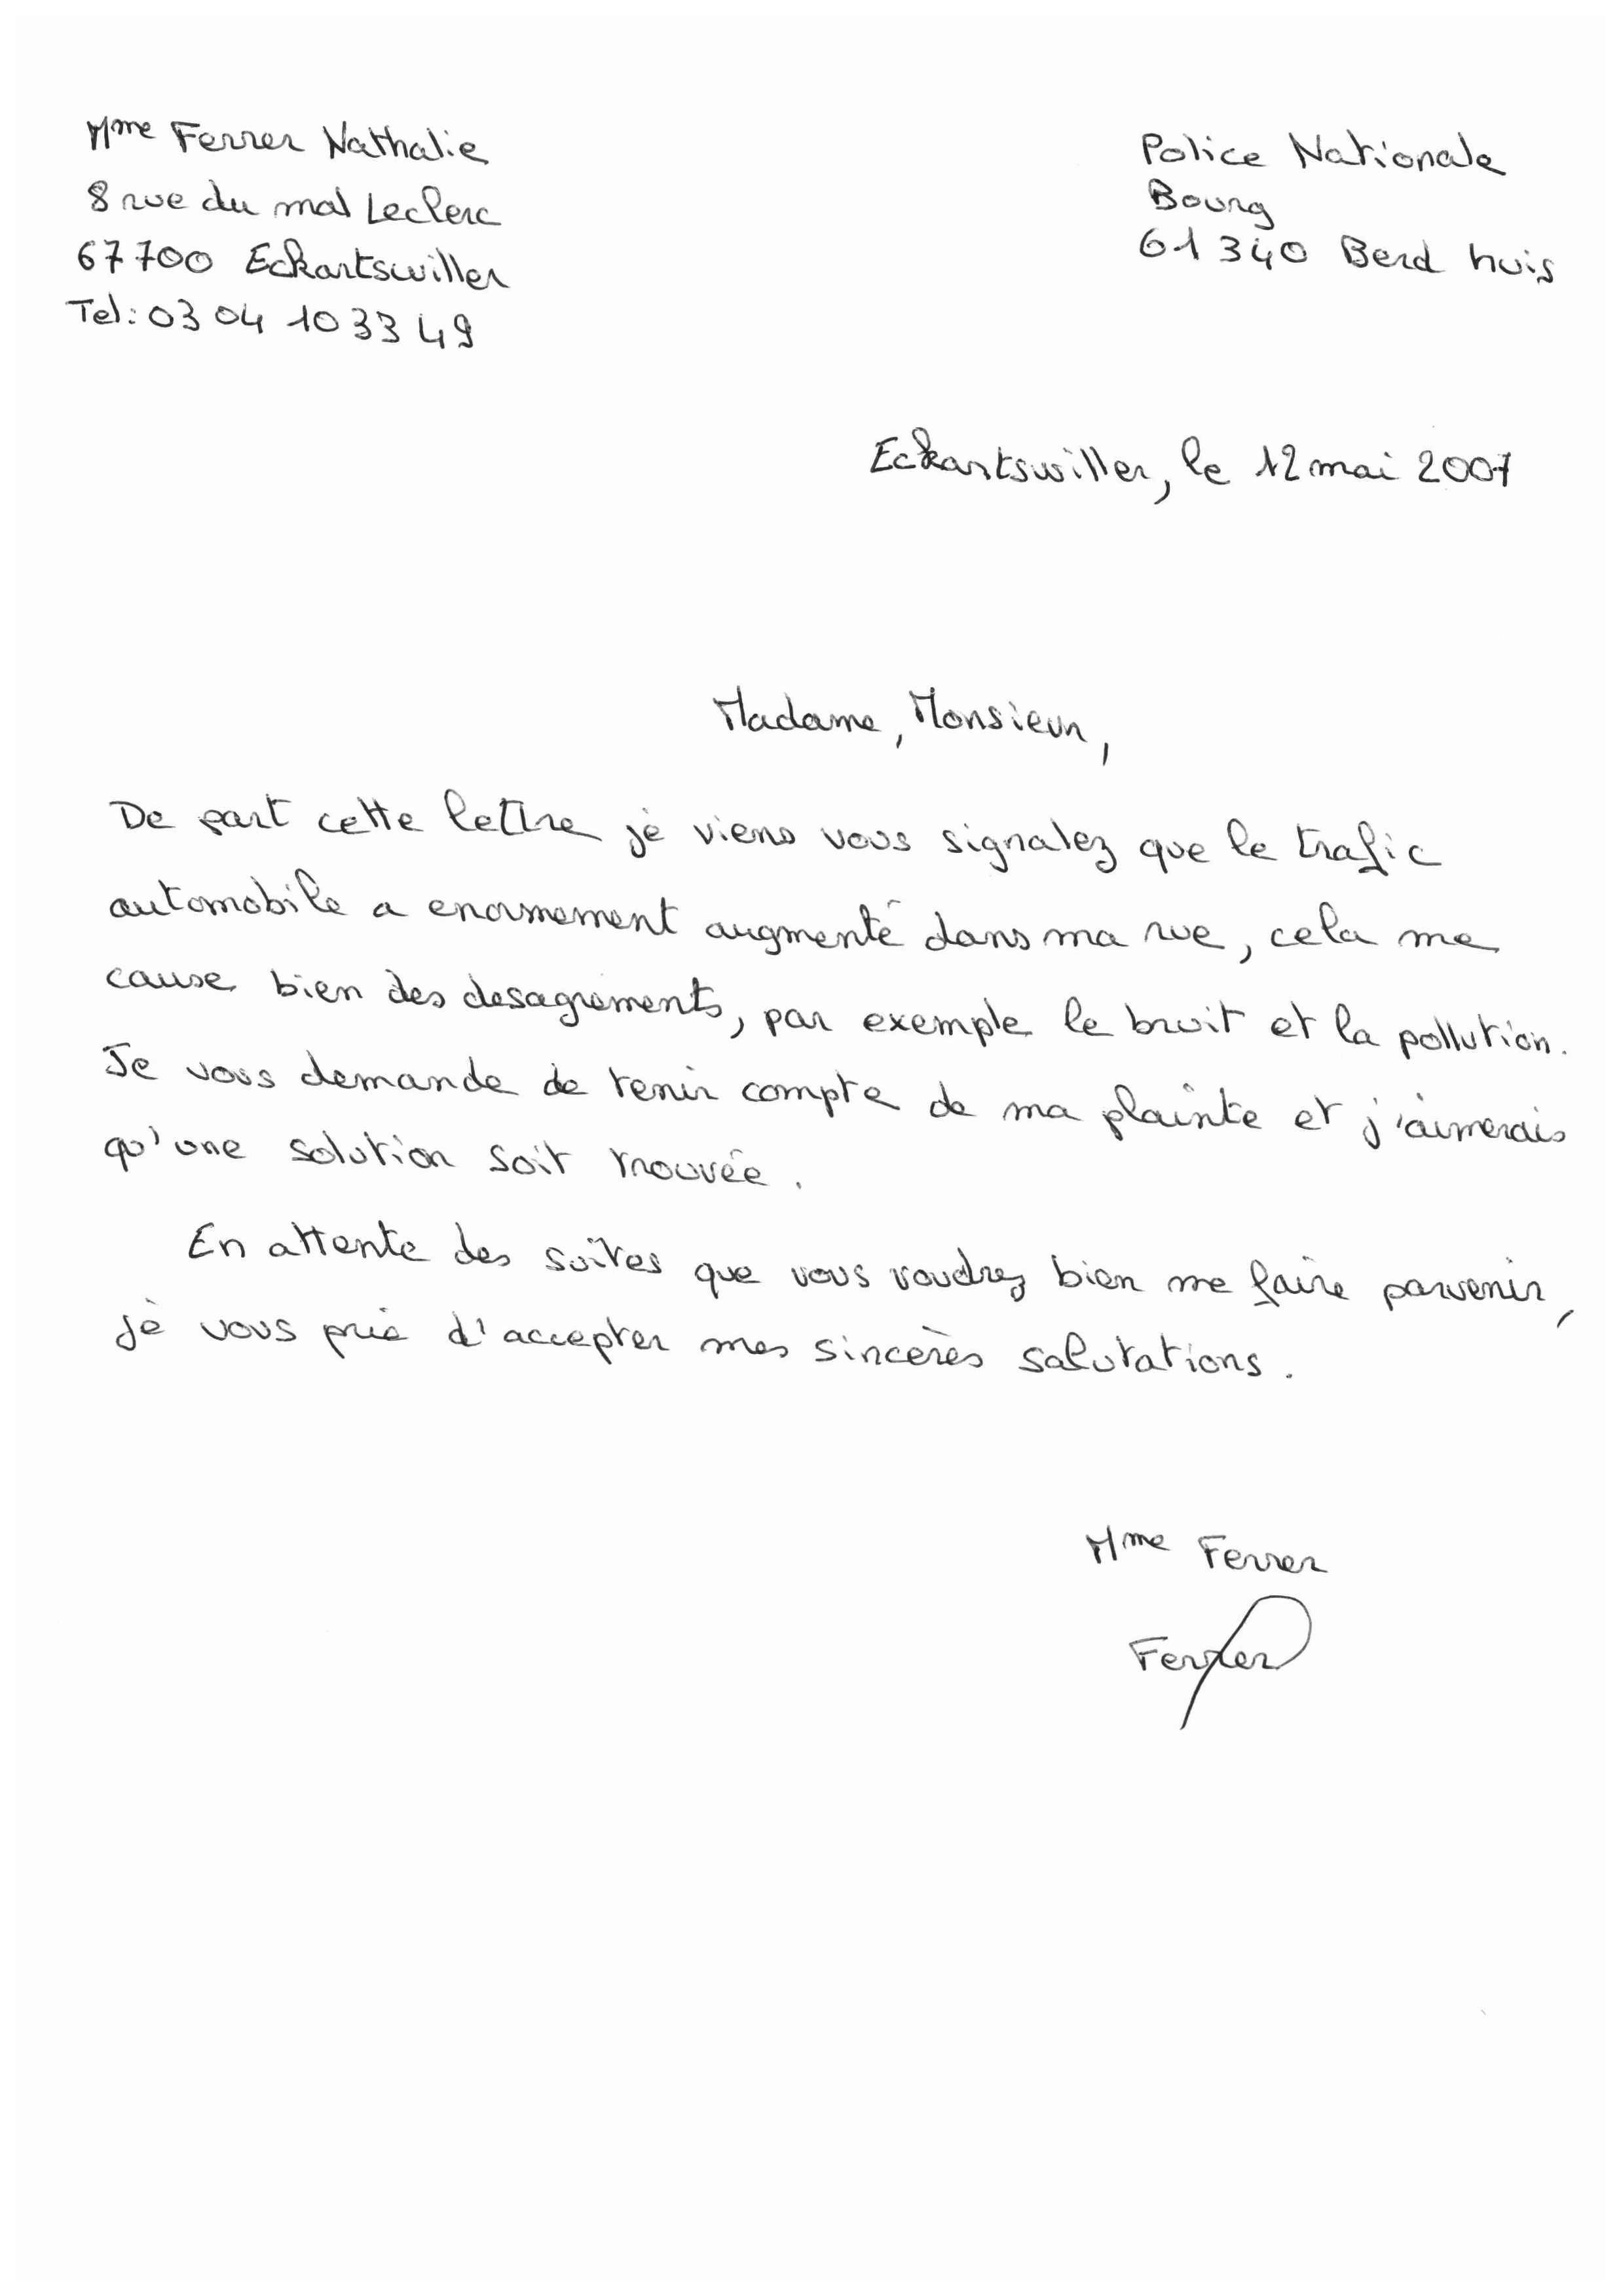 Mme Ferrer Nathalie
8 rue du mal Leclerc
67700 Eckartswiller
Tel: 03 04 10 33 49
Police Nationale
Bourg
61 340 Berd huis
Eckartswiller, le 12 mai 2007
Madame, Monsieur,
De part cette lettre je viens vous signalez que le trafic
automobile a enormement augmenté dans ma rue, cela me
cause bien des desagrements, par exemple le bruit et la pollution.
Je vous demande de tenir compte de ma plainte et j'aimerais
qu'une solution soit trouvée.
En attente des suites que vous voudrez bien me faire parvenir,
je vous prie d'accepter mes sincères salutations.
Mme Ferrer
Ferrer